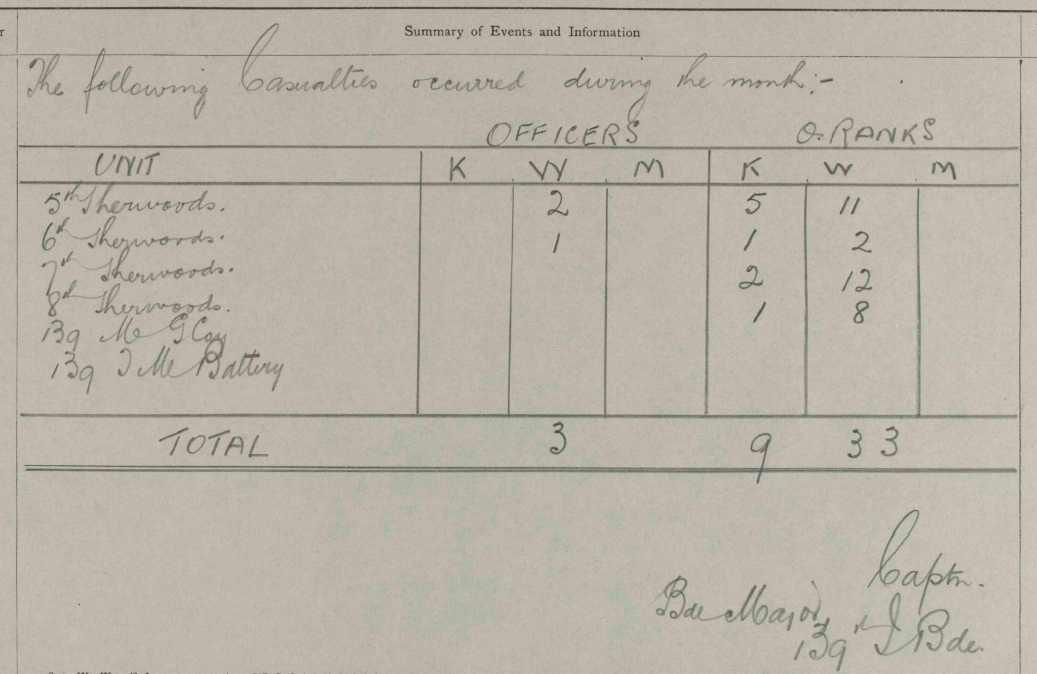 Summary of Events and Information
The following Casualties occurred during the month:-
OFFICERS O. RANKS
UNIT K W M K W M
5th Sherwoods. 2 5 11
6th Sherwoods. 1 1 2
7th Sherwoods. 2 12
8th Sherwoods. 1 8
139 M G Coy
139 T M Battery
TOTAL 3 9 33
Captn.
Bde Major,
139th I Bde.